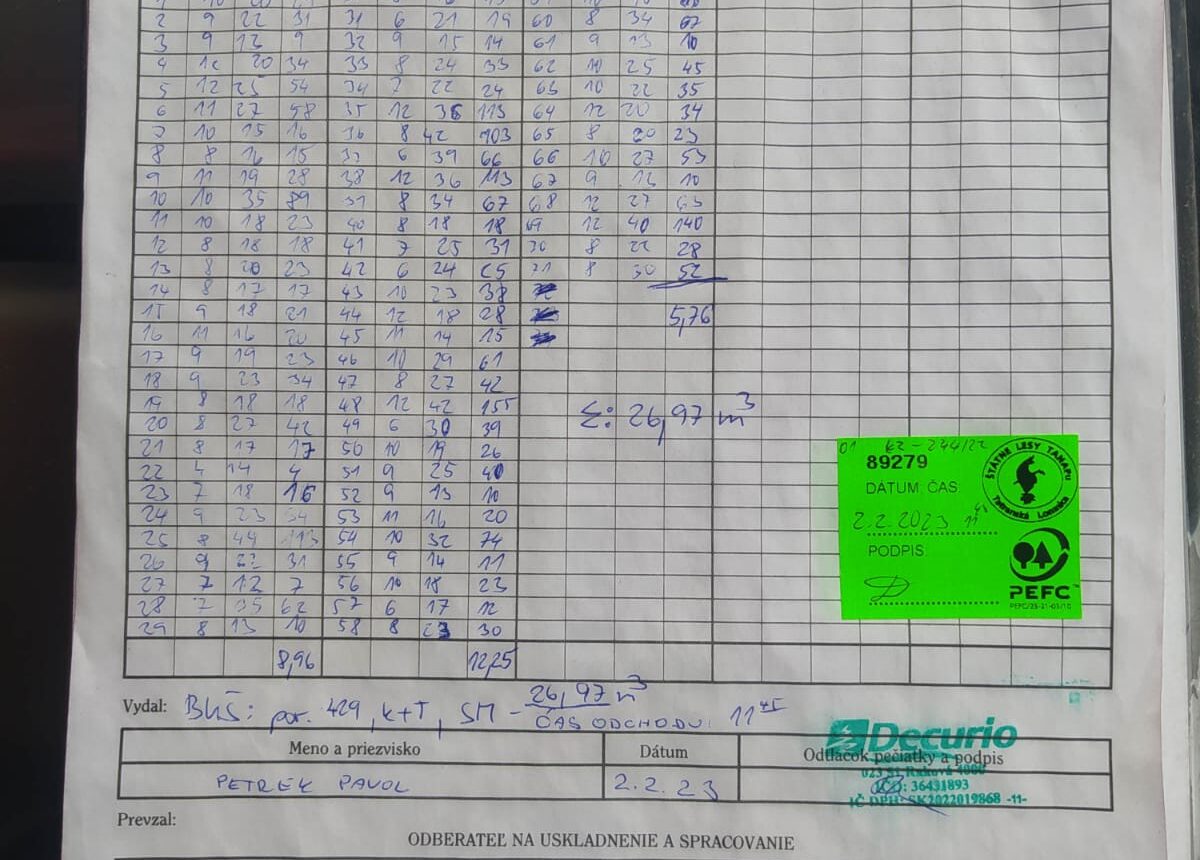 2 9 22 31 31 6 21 19 60 8 34 67
3 9 13 9 32 9 15 14 61 9 13 10
4 10 20 34 33 8 24 33 62 10 25 45
5 12 25 54 34 7 22 24 63 10 22 35
6 11 27 58 35 12 36 113 64 12 20 34
7 10 15 16 36 8 42 103 65 8 20 23
8 8 16 15 37 6 39 66 66 10 27 53
9 11 19 28 38 12 36 113 67 9 13 10
10 10 35 89 39 8 34 67 68 12 27 63
11 10 18 23 40 8 18 18 69 12 40 140
12 8 18 18 41 7 25 31 70 8 22 28
13 8 20 23 42 6 24 25 71 8 30 52
14 8 17 17 43 10 23 38
15 9 18 21 44 12 18 28 5,76
16 11 16 20 45 11 14 15
17 9 19 23 46 10 29 61
18 9 23 34 47 8 27 42
19 8 18 18 48 12 42 155
Σ: 26,97 m³
20 8 27 42 49 6 30 39
21 8 17 17 50 10 19 26
22 4 14 4 51 9 25 40
23 7 18 16 52 9 13 10
24 9 23 34 53 11 16 20
25 8 44 113 54 10 32 74
26 9 22 31 55 9 14 11
27 7 12 7 56 10 18 23
28 7 35 62 57 6 17 12
29 8 13 10 58 8 23 30
8,96 12,25
01 KZ - 244/22
89279
DÁTUM, ČAS
2.2.2023 11⁴⁵
PODPIS:
ŠTÁTNE LESY TANAPU
Tatranská Lomnica
PEFC™
PEFC/23-21-03/10
Vydal: BKŠ: por. 429, K+T, SM - 26,97 m³
ČAS ODCHODU: 11⁴⁵
Meno a priezvisko Dátum Odtlačok pečiatky a podpis
PETREK PAVOL 2.2.23
Decurio
023 51 Raková 4000
IČO: 36431893
IČ DPH: SK2022019868 -11-
Prevzal:
ODBERATEĽ NA USKLADNENIE A SPRACOVANIE